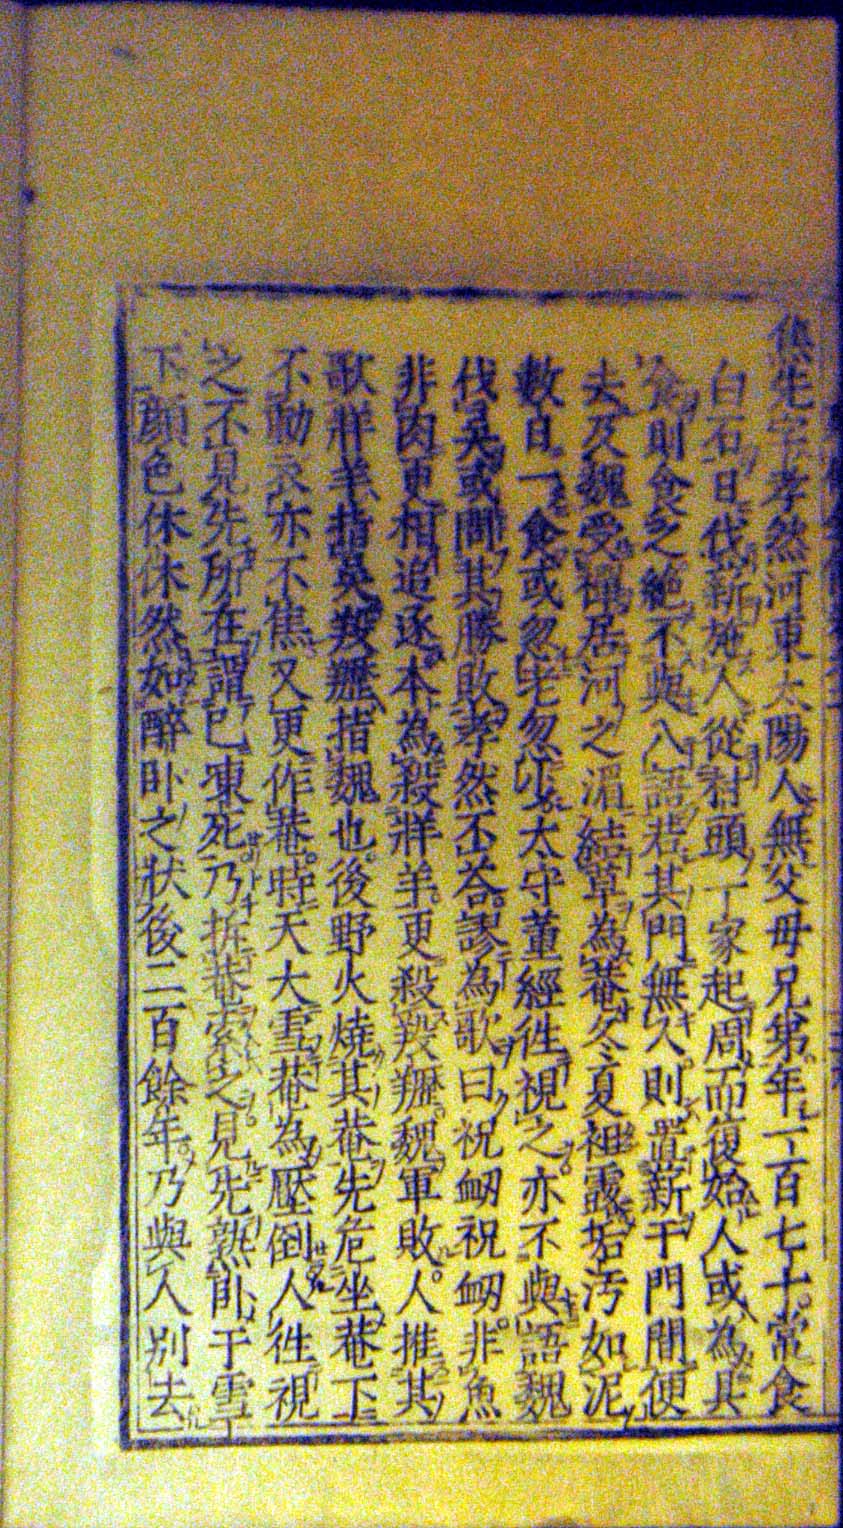 焦先字孝然河東太陽人無父母兄弟年一百七十常食
白石日伐薪施人從村頭一家起周而復始人或為具
食則食之絶不與人語若其門無人則置薪于門間便
去及魏受禅居河之湄結草為菴冬夏袒露垢汚如泥
數日一食或忽老忽少太守董經徃視之亦不與語魏
伐吳或問其勝敗孝然不荅謬為歌曰祝衂祝衂非魚
非肉更相追逐本為殺牂羊更殺羖䍽魏軍敗人推其
歌牂羊指吳羖䍽指魏也後野火燒其菴先危坐菴下
不動衣亦不焦又更作菴時天大雪菴為壓倒人徃視
之不見先所在謂已凍死乃拆菴索之見先熟卧于雪
下顔色休休然如醉卧之狀後二百餘年乃與人別去